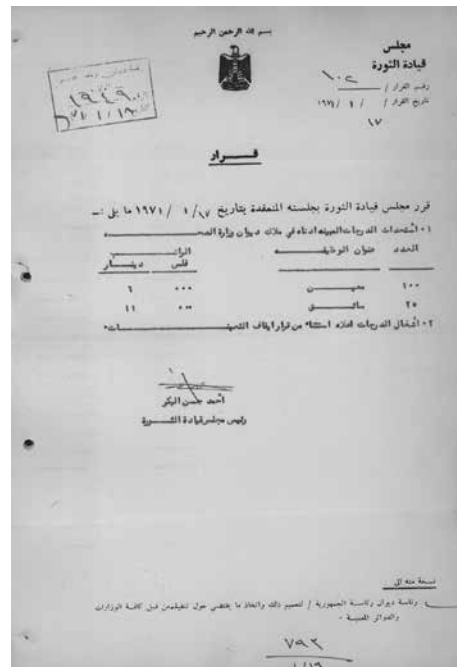 بسم الله الرحمن الرحيم
مجلس
قيادة الثورة
رقم القرار / ١٠٢
تاريخ القرار / / ١ / ١٩٧١
١٧
١٩٤٩
٧١/١/١٩
قـــرار
قرر مجلس قيادة الثورة بجلسته المنعقدة بتاريخ ١٧ / ١ / ١٩٧١ ما يلي :ـ
١٠ أستحداث الدرجات المبينه ادناه في ملاك ديوان وزارة الصحـــه
العدد عنوان الوظيفـــه الراتـــب
فلس دينـــار
١٠٠ معيـــن ٠٠٠ ٦
٢٥ سائـــق ٠٠٠ ١١
٢٠ أشغال الدرجات اعلاه استثناء من قرار ايقاف التعيينـــات٠
أحمد حسن البكر
رئيس مجلس قيادة الثـــورة
نسخة منه الى
رئاسة ديوان رئاسة الجمهورية / لتعميم ذلك واتخاذ ما يقتضي حول تنفيذه من قبل كافة الوزارات
والدوائر المعنية ٠
٧٩٢
١/١٩